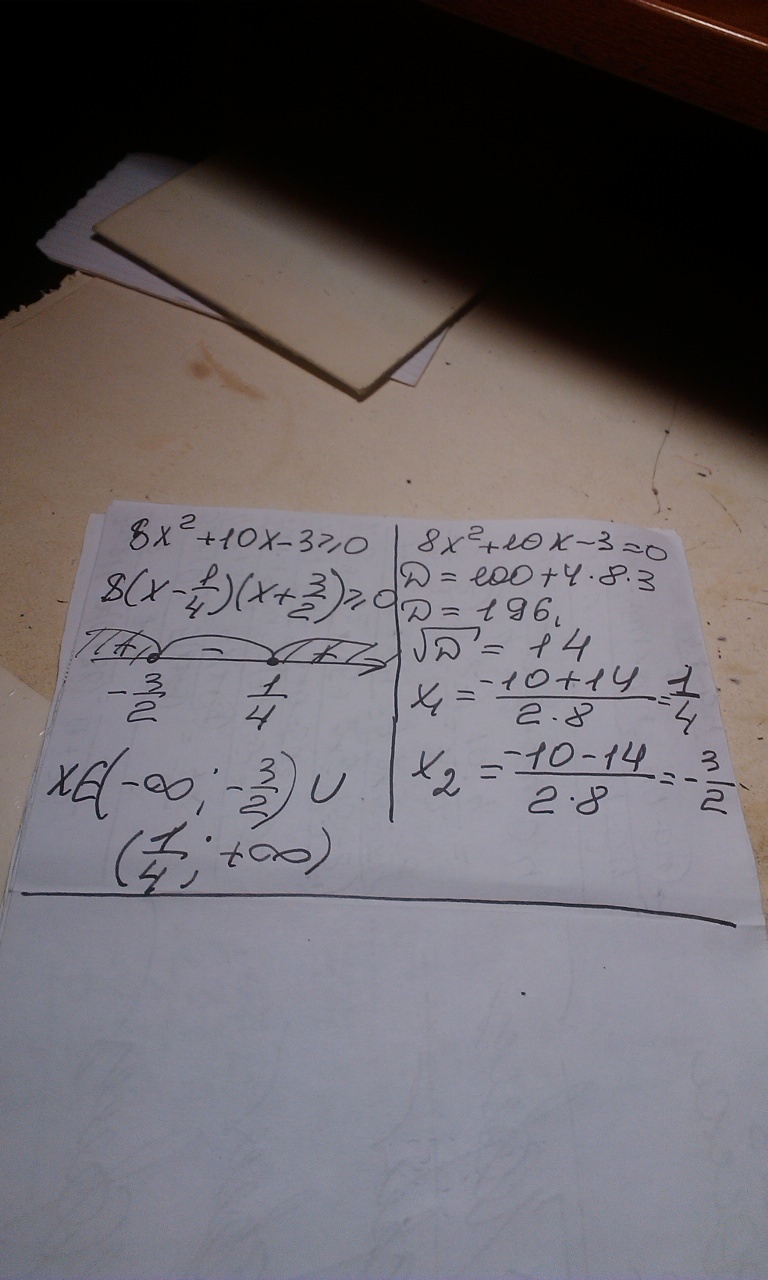 8x² + 10x - 3 ≥ 0
8(x - 1/4)(x + 3/2) ≥ 0
+ - +
-3/2 1/4
x ∈ (-∞; -3/2) ∪
(1/4; +∞)
8x² + 10x - 3 = 0
D = 100 + 4 · 8 · 3
D = 196,
√D = 14
x₁ = (-10 + 14)/(2 · 8) = 1/4
x₂ = (-10 - 14)/(2 · 8) = -3/2